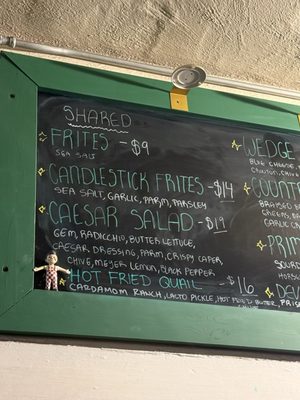 SHARED
FRITES - $9
SEA SALT
CANDLESTICK FRITES - $14
SEA SALT, GARLIC, PARM, PARSLEY
CAESAR SALAD - $19
GEM, RADICCHIO, BUTTER LETTUCE,
CAESAR DRESSING, PARM, CRISPY CAPER
CHIVE, MEYER LEMON, BLACK PEPPER
HOT FRIED QUAIL $16
CARDAMOM RANCH, LACTO PICKLE, HOT FRIED BUTTER
WEDGE
BLUE CHEESE
CROUTON, CHIVE
COUNT
BRAISED
CHEESE,
GARLIC
PRIM
SOURD
HORSER